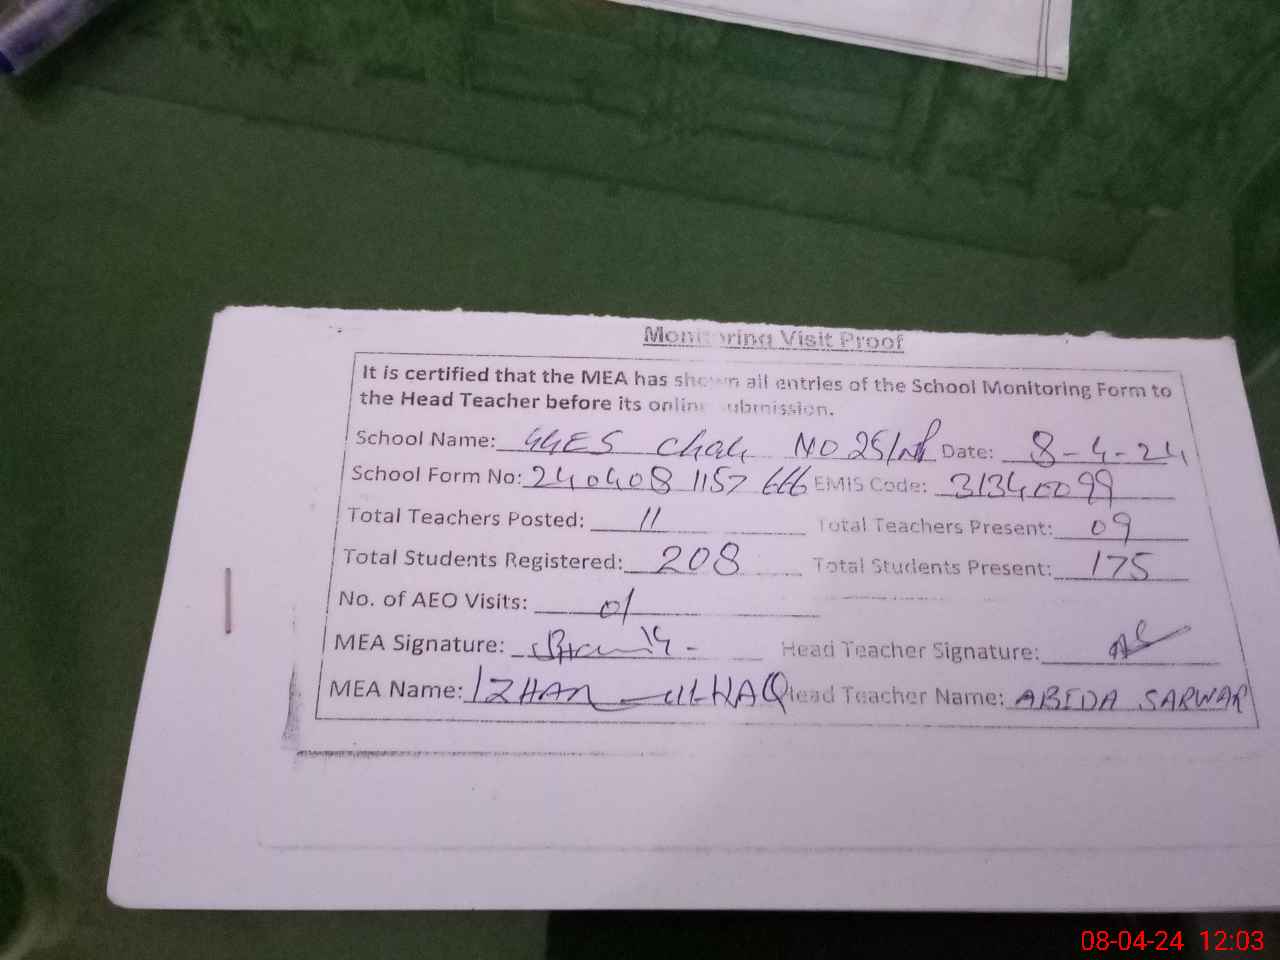 Monitoring Visit Proof
It is certified that the MEA has shown all entries of the School Monitoring Form to
the Head Teacher before its online submission.
School Name: GGES Chak NO 25/NP Date: 8-4-24
School Form No: 240408 1157 666 EMIS Code: 31340099
Total Teachers Posted: 11 Total Teachers Present: 09
Total Students Registered: 208 Total Students Present: 175
No. of AEO Visits: 01
MEA Signature: Head Teacher Signature:
MEA Name: IZHAR UL HAQ Head Teacher Name: ABIDA SARWAR
08-04-24 12:03